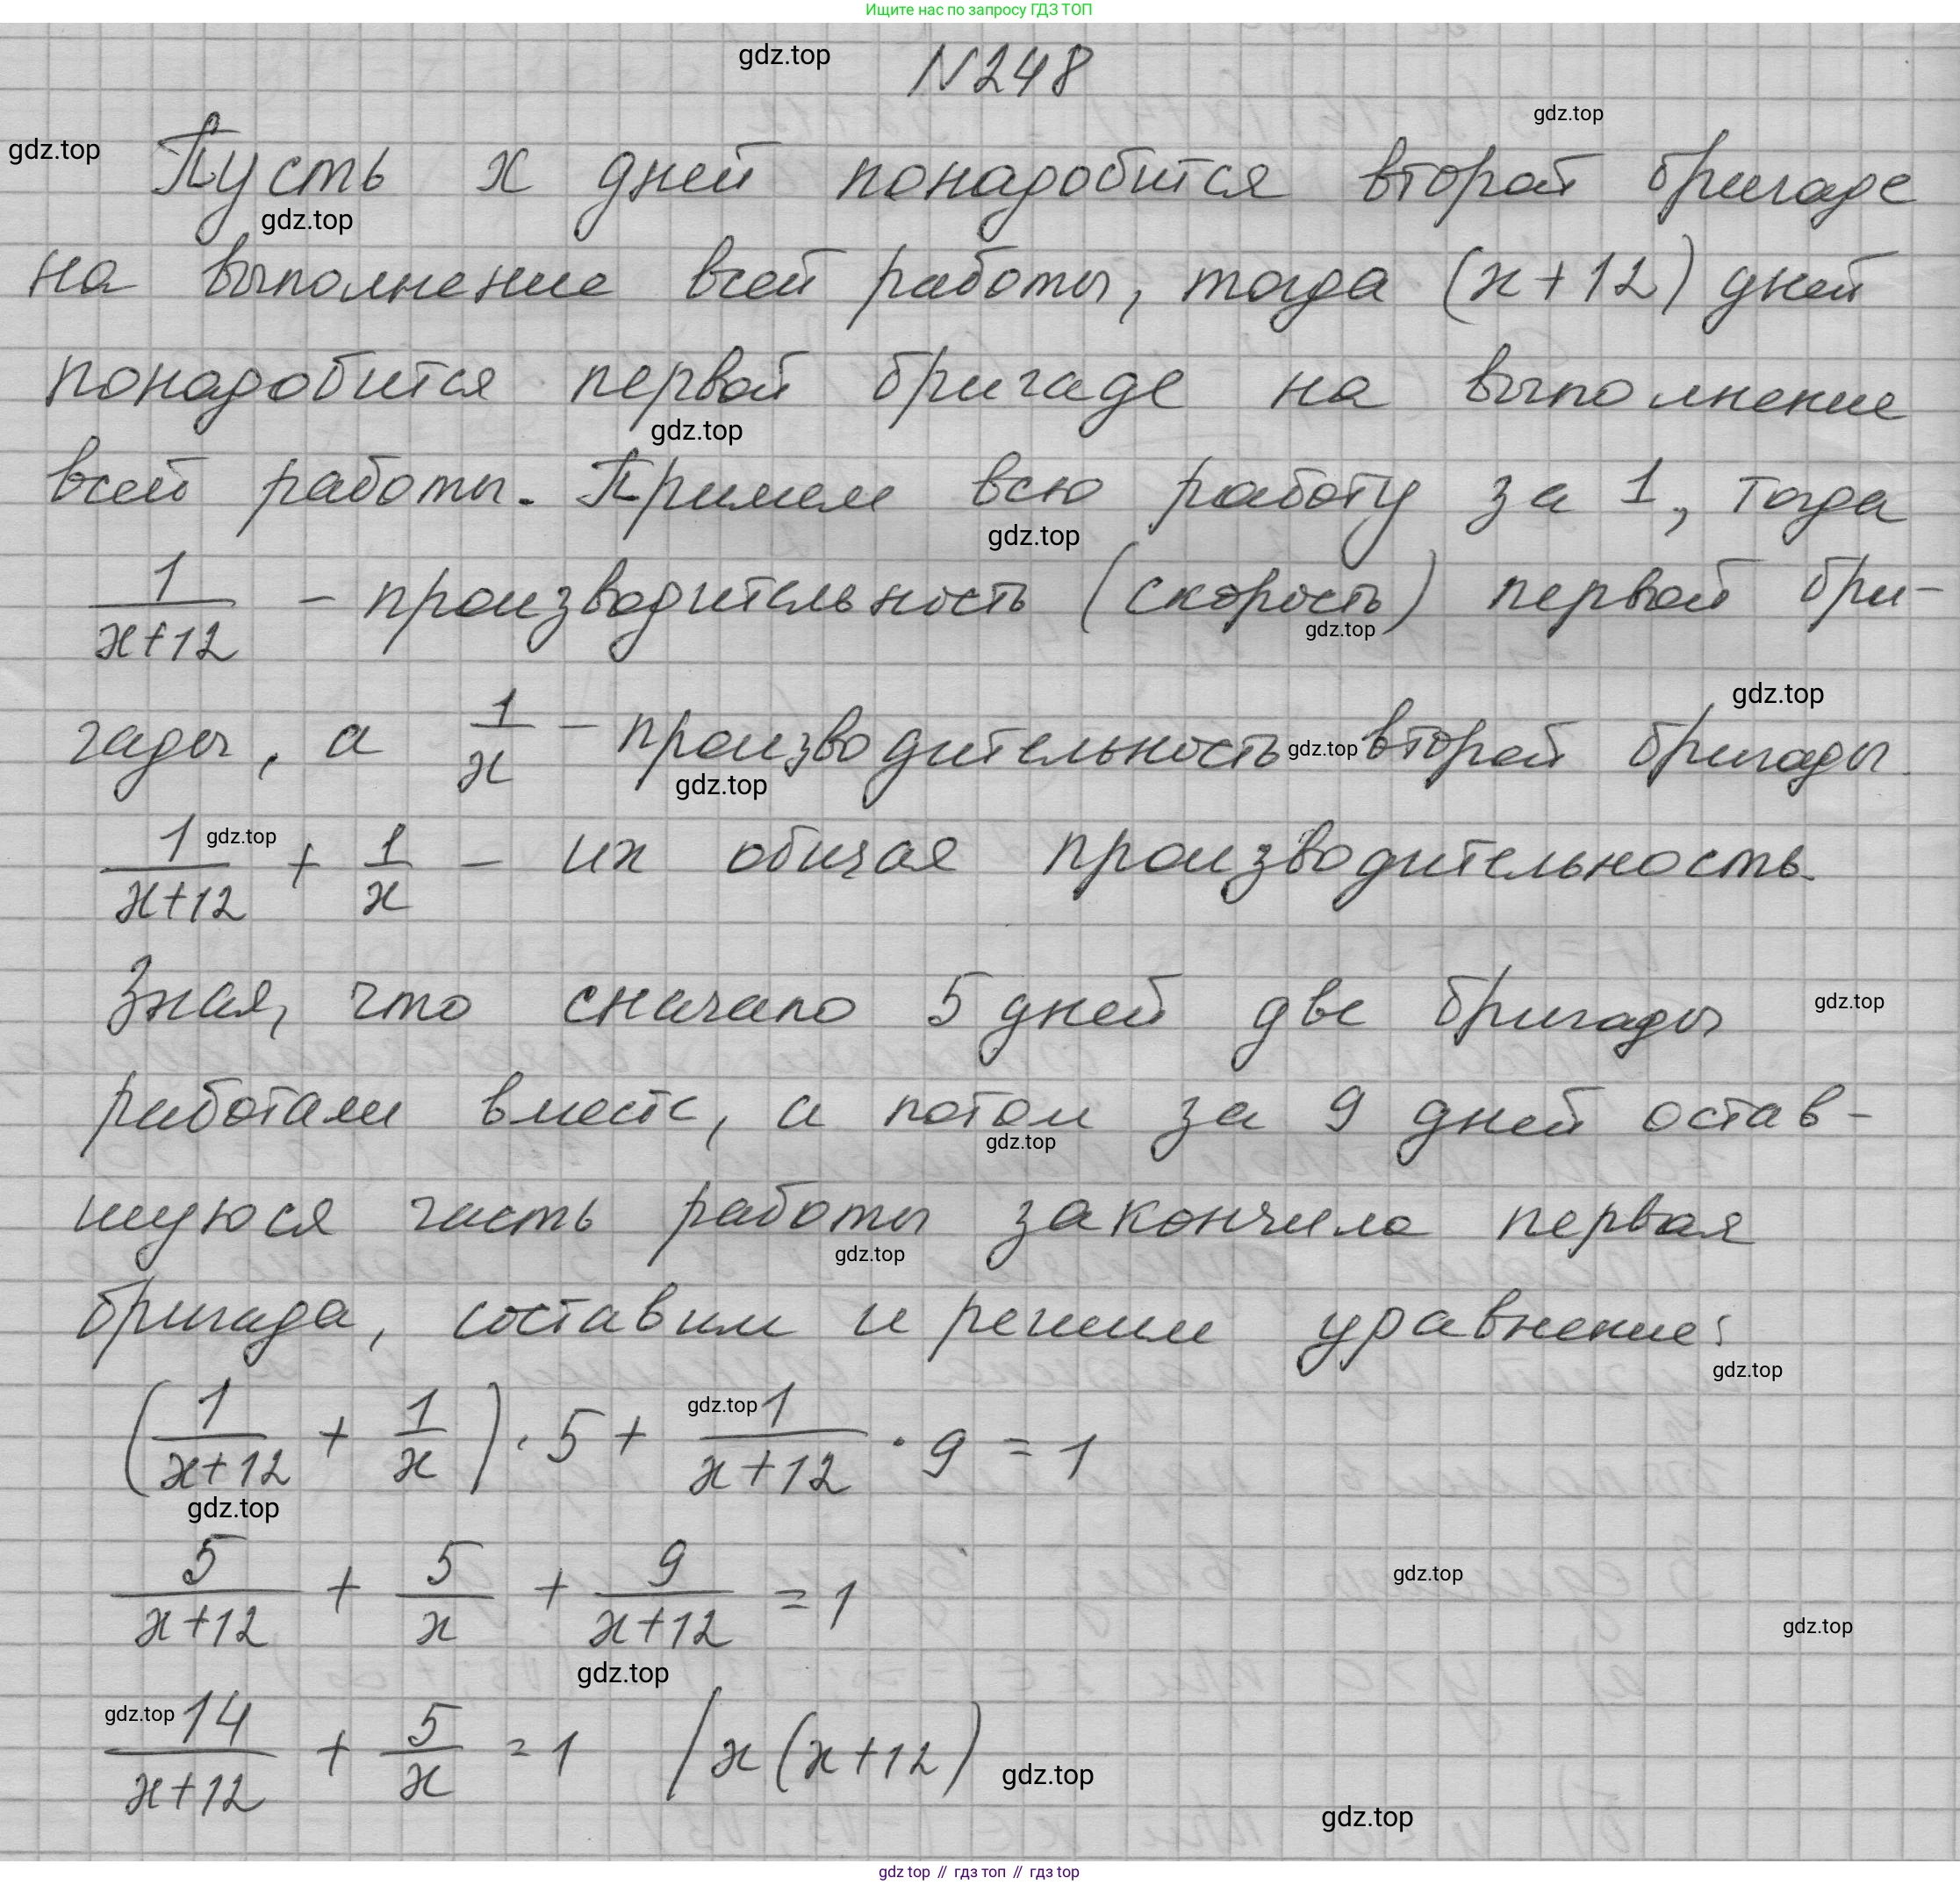 Ищите нас по запросу ГДЗ ТОП
gdz.top
N248
gdz.top
gdz.top
Пусть x дней понадобится второй бригаде
gdz.top
на выполнение всей работы, тогда (x+12) дней
понадобится первой бригаде на выполнение
gdz.top
всей работы. Примем всю работу за 1, тогда
gdz.top
1/(x+12) – производительность (скорость) первой бри-
gdz.top
gdz.top
гады, а 1/x – производительность gdz.top второй бригады.
gdz.top
1/(x+12) + 1/x – их общая производительность.
gdz.top
Зная, что сначало 5 дней две бригады
gdz.top
работали вместе, а потом за 9 дней остав-
gdz.top
шуюся часть работы закончила первая
gdz.top
бригада, составим и решим уравнение:
gdz.top
(1/(x+12) + 1/x) · 5 + 1/(x+12) · 9 = 1
gdz.top
gdz.top
5/(x+12) + 5/x + 9/(x+12) = 1
gdz.top
gdz.top
gdz.top
gdz.top
14/(x+12) + 5/x = 1 / x(x+12)
gdz.top
gdz.top
gdz top // гдз топ // гdz top